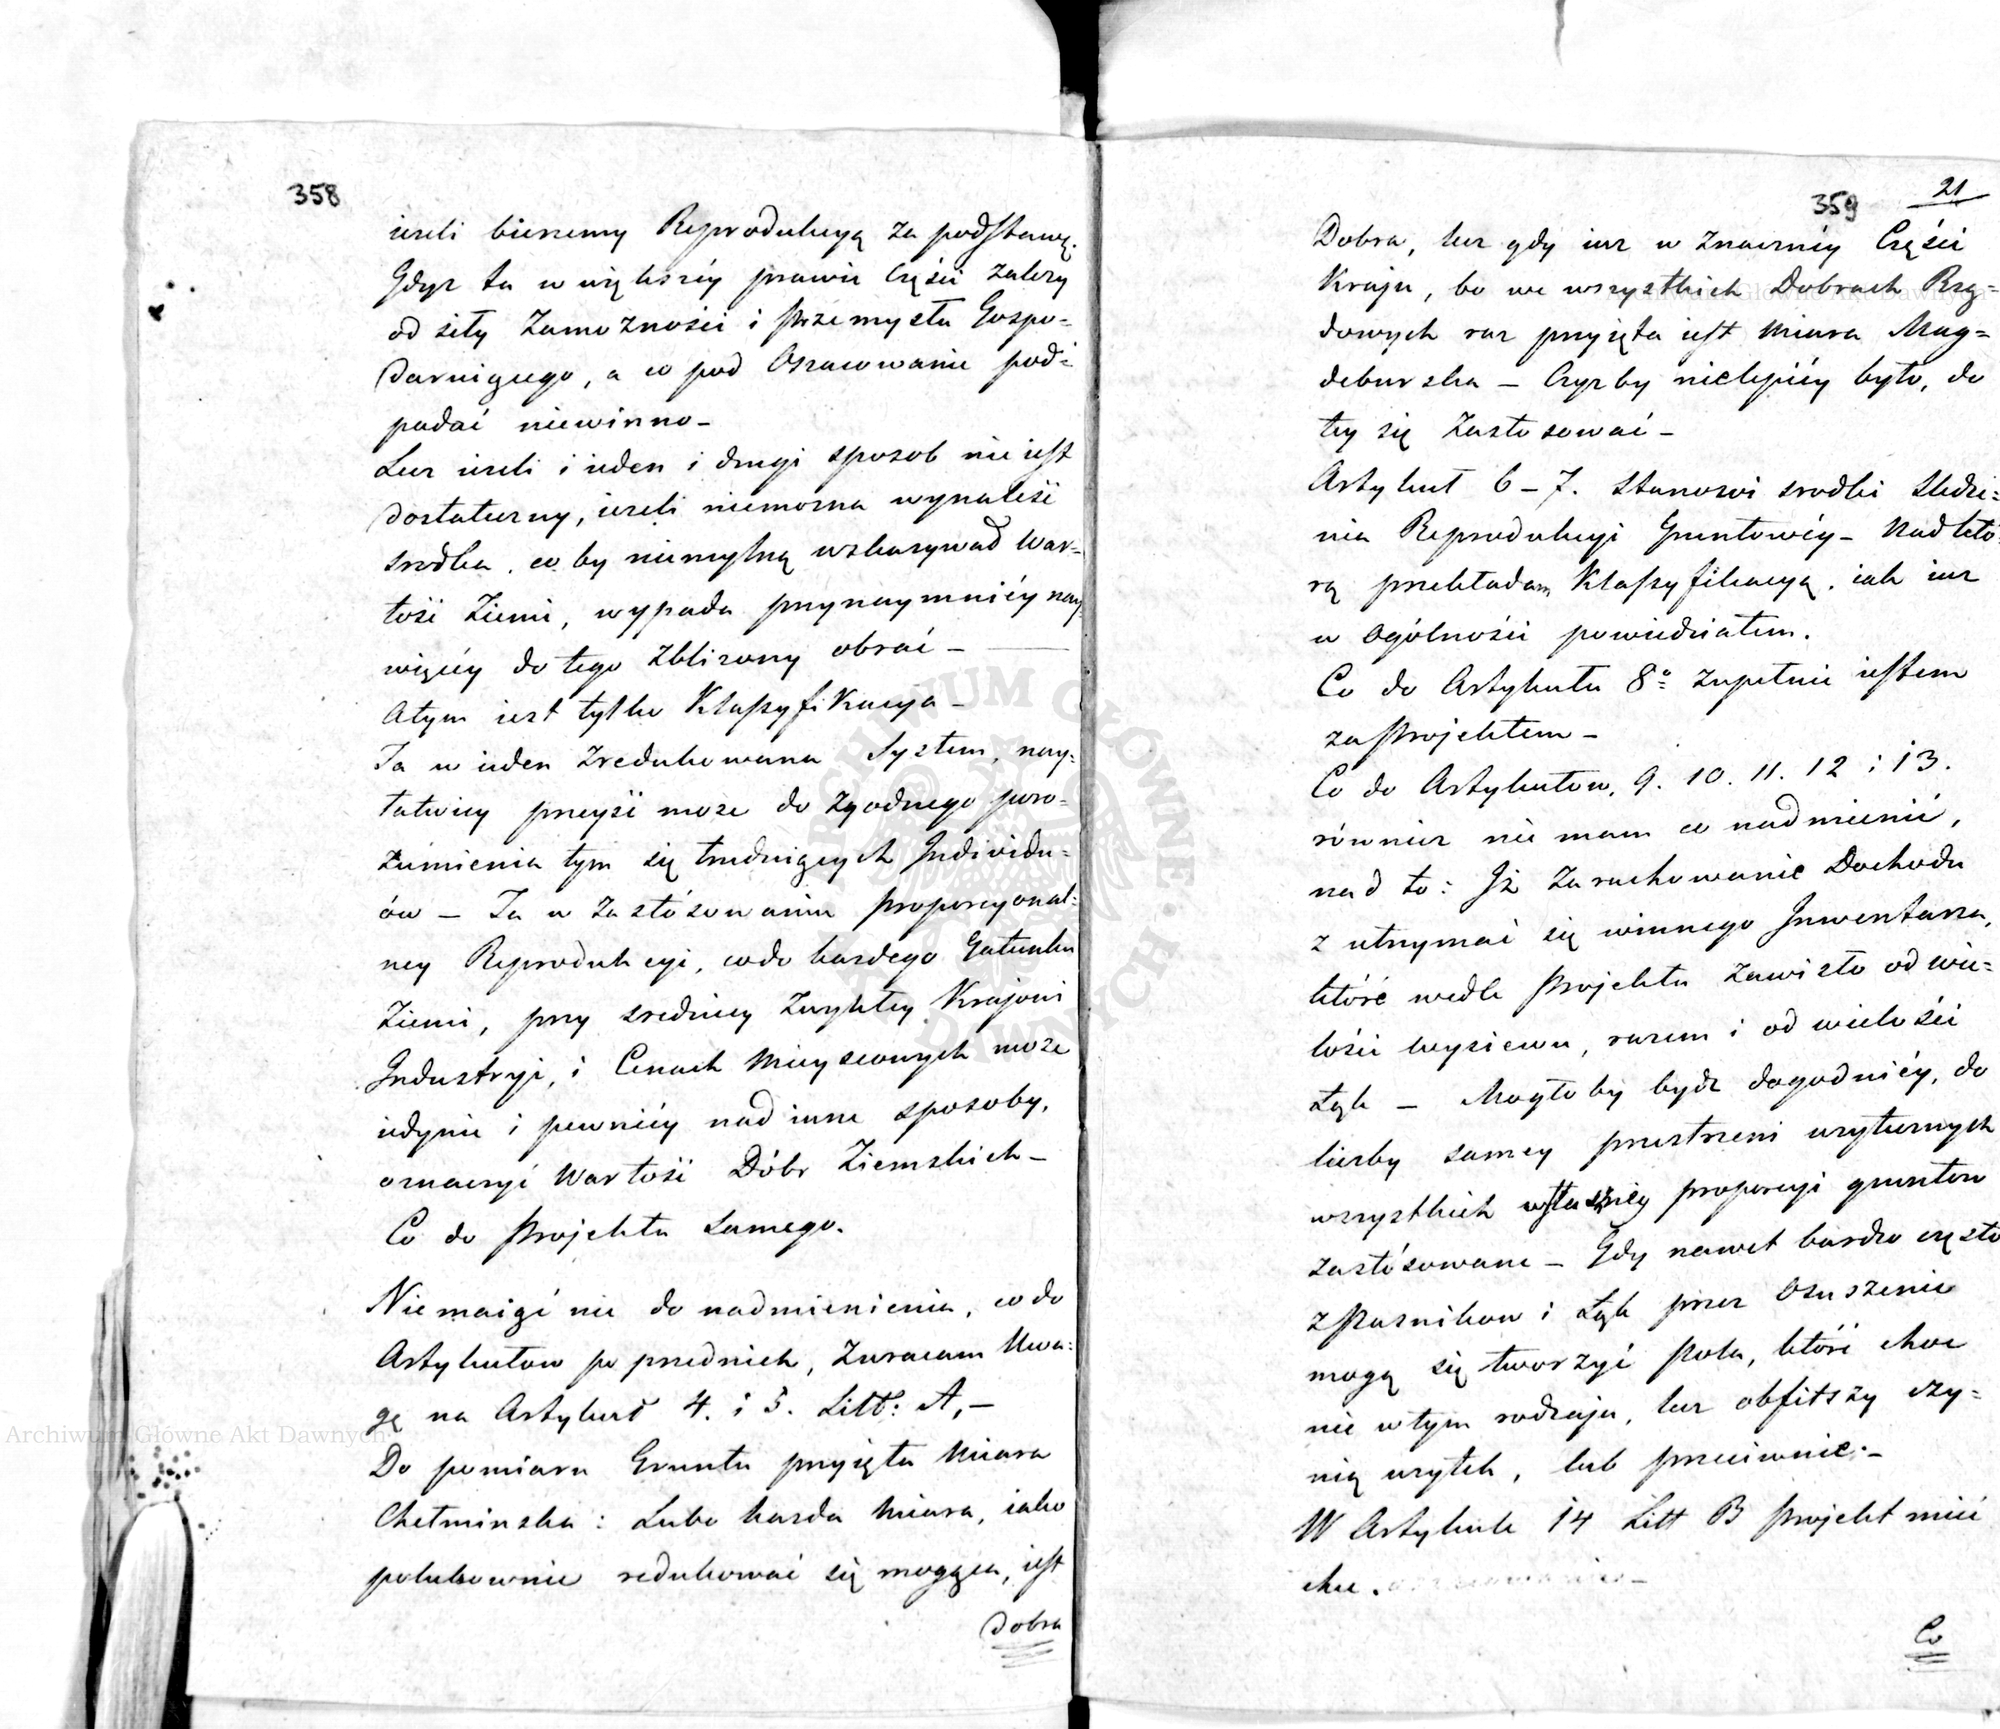 358
ieżeli bierzemy Reprodukcyą za podstawę.
Gdyż ta w większéy prawie Części zależy
od siły Zamożności i Przemysłu Gospo=
Daruiącego, a co pod Oszacowanie pod=
padać niewinno –
Lecz ieżeli i ieden i drugi sposob nie iest
Dostateczny, ieżeli niemożna wynaleśź
srodka, co by niemylną wskazywał War=
tość Ziemi, wypada przynaymniéy nay=
więcéy do tego zbliżony obrać –
Atym iest tylko Klassyfikacya –
Ta w ieden zredukowana System, nay=
łatwiey przeyść może do zgodnego poro=
zumienia tym się trudniących Individu=
ów – Ta w zastósowaniu proporcyonal=
ney Reprodukcyi, co do każdego Gatunku
Ziemi, przy sredniey zwykłey Krajowi
Industryi, i Cenach Mieyscowych może
iedynie i pewniéy nad inne sposoby,
oznaczyć Wartość Dóbr Ziemskich –
Co do Projektu samego.
Niemaiąć nic do nadmienienia, co do
Artykułow poprzednich, zwracam Uwa=
gę na Artykuł 4. i 5. Litt: A, –
Do pomiaru Gruntu przyięta Miara
Chełminska: Lubo każda Miara, iako
polubownie redukować się mogąca, iest
Dobra
359
21
Dobra, lecz gdy iuż w znacznéy Części
Kraju, bo we wszystkich Dobrach Rzą=
dowych raz przyięta iest Miara Mag=
deburska – Czyżby nielepiéy było, do
tey się zastosować –
Artykuł 6 – 7. stanowi srodki sledze=
nia Reprodukcyi Gruntowéy – Nad któ=
rą przekładam Klassyfikacyą, iak iuż
w ogólności powiedziałem.
Co do Artykułu 8º zupełnie iestem
za Projektem –
Co do Artykułow, 9. 10. 11. 12 i 13.
również nie mam co nadmienić,
nad to: Iż zarachowanie Dochodu
z utrzymać się winnego Inwentarza,
które wedle Projektu zawisło od wie=
lości wysiewu, razem i od wielości
Łąk – Mogłoby bydz dogodniéy, do
liczby samey przestrzeni użytecznych
wszystkich własniey proporcyi gruntow
zastósowane – Gdy nawet bardzo często
z Pasnikow i Łąk przez Osuszenie
mogą się tworzyć Pola, któré choc
nie w tym rodzaju, lecz obfitszy czy=
nią użytek, lub przeciwnie. –
W Artykule 14 Litt B Projekt mieć
chce.
Co
Archiwum Główne Akt Dawnych
ARCHIWUM GŁÓWNE AKT DAWNYCH